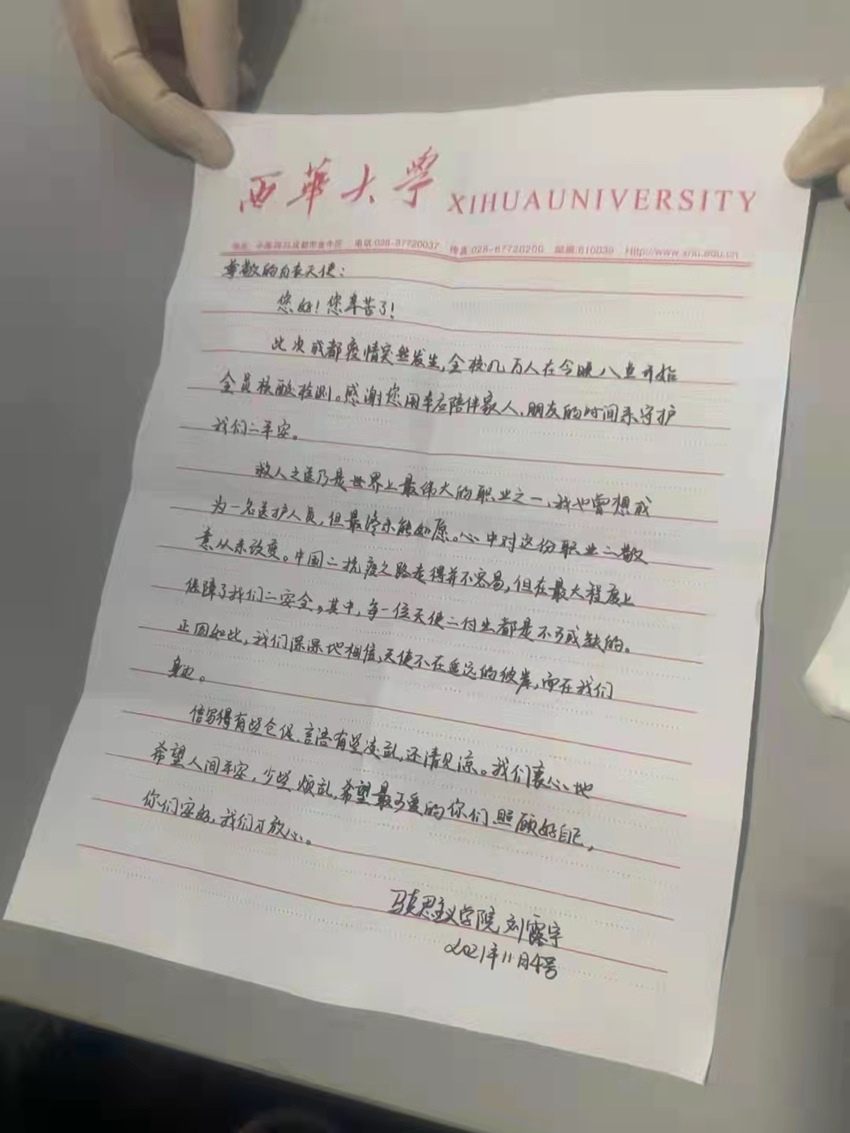 西華大學 XIHUAUNIVERSITY
地址:中国四川成都市金牛区 电话:028-87720037 传真:028-87720200 邮编:610039 Http://www.xhu.edu.cn
尊敬的白衣天使:
您好!您辛苦了!
此次成都疫情突然发生,全校几万人在今晚八点开始
全员核酸检测。感谢您用本应陪伴家人、朋友的时间来守护
我们二平安。
救人之医乃是世界上最伟大的职业之一,我也曾想成
为一名医护人员,但最终未能如愿。心中对这份职业二敬
意从未改变。中国二抗疫之路走得并不容易,但在最大程度上
保障了我们二安全。其中,每一位天使二付出都是不可或缺的。
正因如此,我们深深地相信,天使不在遥远的彼岸,而在我们
身边。
信写得有些仓促,言语有些凌乱,还请见凉。我们衷心地
希望人间平安,少些烦乱,希望最可爱的你们照顾好自己,
你们安好,我们才放心。
马克思主义学院 刘露宇
2021年11月4号